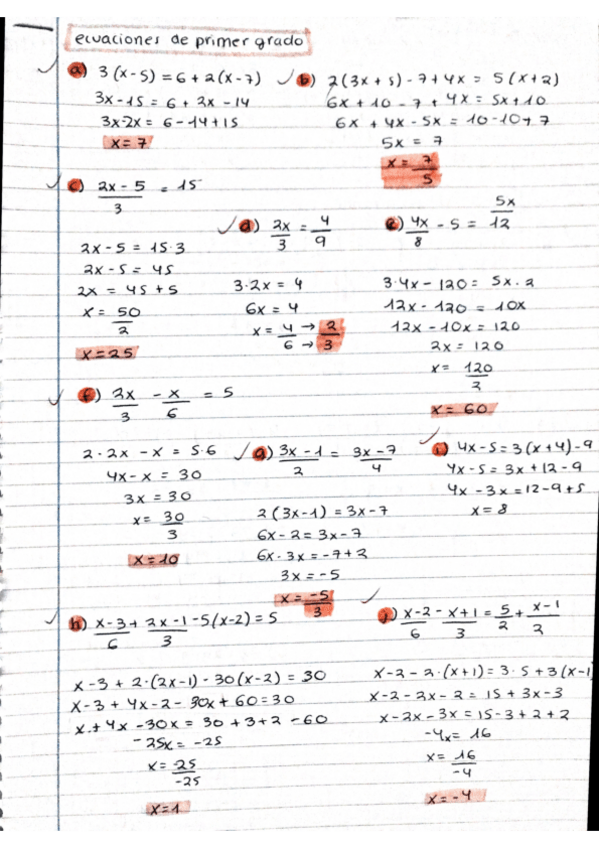 ecuaciones de primer grado
a) 3(x-5) = 6 + 2(x-7)
3x-15 = 6 + 2x - 14
3x-2x = 6 - 14 + 15
x = 7
b) 2(3x+5) - 7 + 4x = 5(x+2)
6x + 10 - 7 + 4x = 5x + 10
6x + 4x - 5x = 10 - 10 + 7
5x = 7
x = 7/5
c) (2x - 5)/3 = 15
2x - 5 = 15·3
2x - 5 = 45
2x = 45 + 5
x = 50/2
x = 25
d) 2x/3 = 4/9
3·2x = 4
6x = 4
x = 4/6 → 2 → 3
e) 4x/8 - 5 = 5x/12
3·4x - 120 = 5x·2
12x - 120 = 10x
12x - 10x = 120
2x = 120
x = 120/2
x = 60
f) 2x/3 - x/6 = 5
2·2x - x = 5·6
4x - x = 30
3x = 30
x = 30/3
x = 10
g) (3x-1)/2 = (3x-7)/4
2(3x-1) = 3x-7
6x - 2 = 3x - 7
6x·3x = -7 + 2
3x = -5
x = -5/3
i) 4x-5 = 3(x+4)-9
4x-5 = 3x + 12 - 9
4x - 3x = 12 - 9 + 5
x = 8
h) (x-3)/6 + (2x-1)/3 - 5(x-2) = 5
x - 3 + 2·(2x-1) - 30(x-2) = 30
x - 3 + 4x - 2 - 30x + 60 = 30
x + 4x - 30x = 30 + 3 + 2 - 60
-25x = -25
x = -25/-25
x = 1
j) (x-2)/6 - (x+1)/3 = 5/2 + (x-1)/2
x - 2 - 2·(x+1) = 3·5 + 3(x-1
x - 2 - 2x - 2 = 15 + 3x - 3
x - 2x - 3x = 15 - 3 + 2 + 2
-4x = 16
x = 16/-4
x = -4